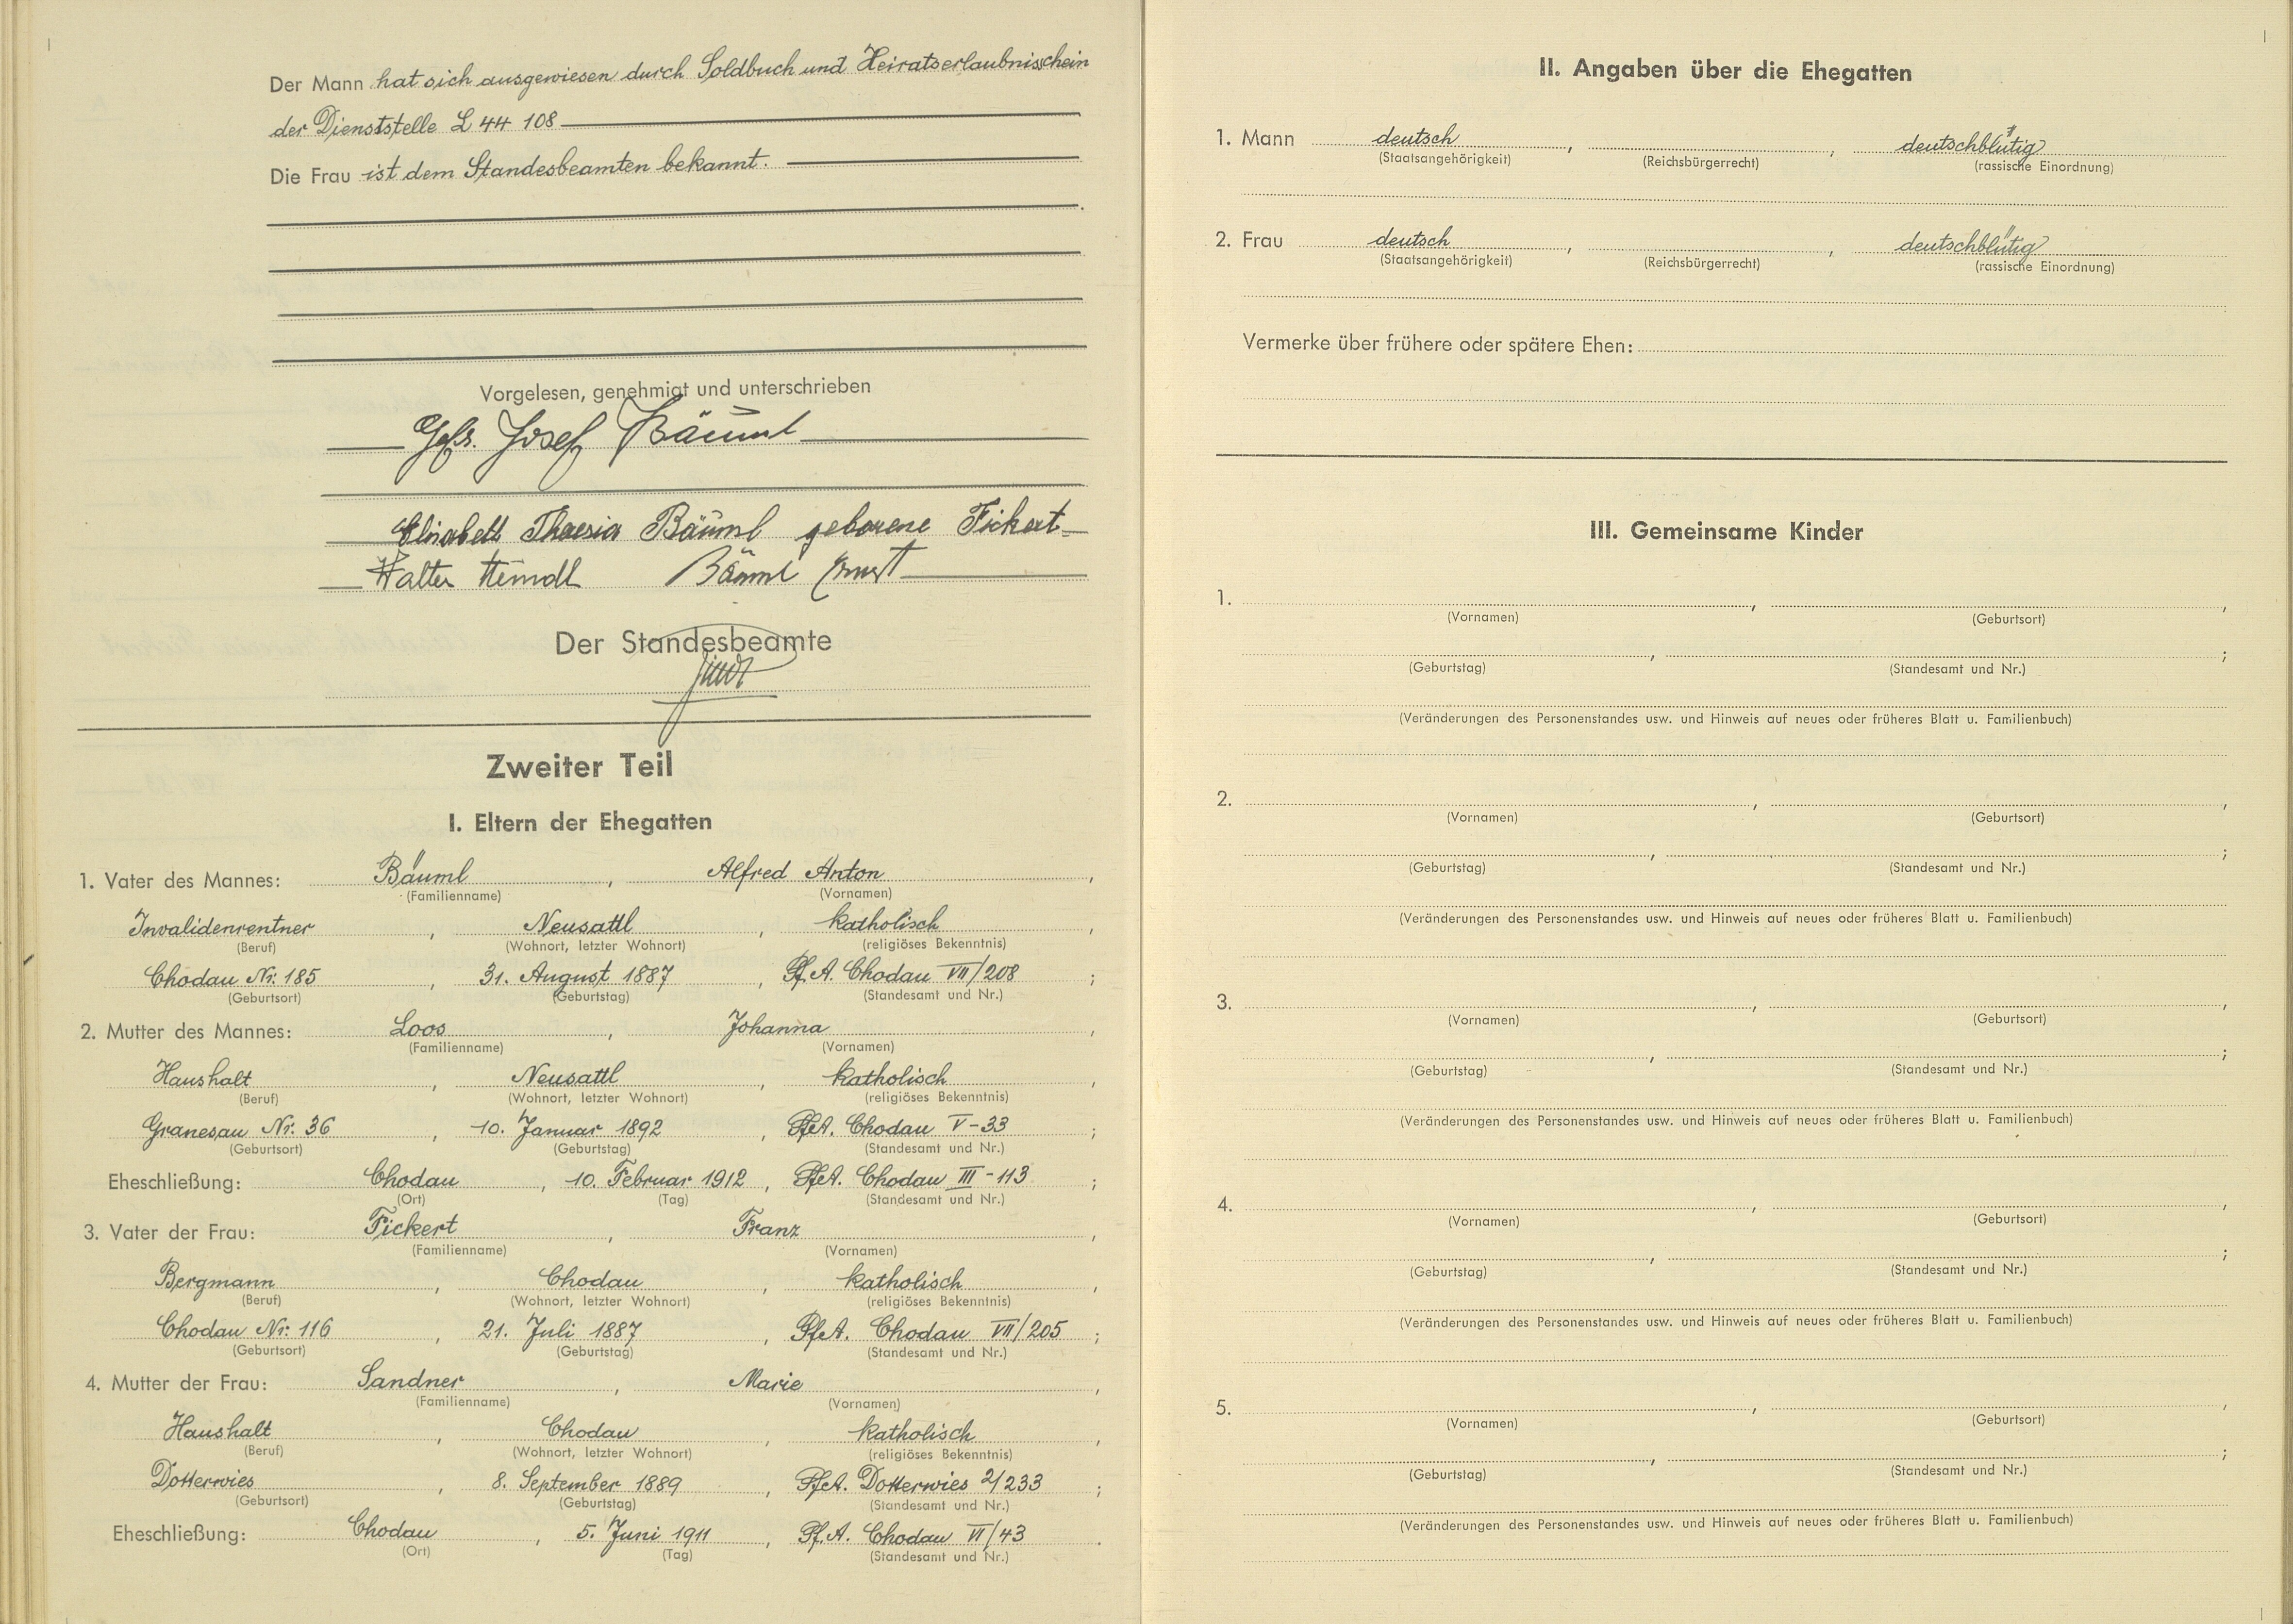 Der Mann hat sich ausgewiesen durch Soldbuch und Heiratserlaubnisschein
der Dienststelle L 44 108
Die Frau ist dem Standesbeamten bekannt.
Vorgelesen, genehmigt und unterschrieben
Gefr. Josef Bäuml
Elisabeth Theresia Bäuml geborene Fickert
Walter Heindl Bäuml Ernst
Der Standesbeamte
Zweiter Teil
I. Eltern der Ehegatten
1. Vater des Mannes: Bäuml, Alfred Anton,
(Familienname) (Vornamen)
Invalidenrentner, Neusattl, katholisch,
(Beruf) (Wohnort, letzter Wohnort) (religiöses Bekenntnis)
Chodau Nr. 185, 31. August 1887, Pf.A. Chodau VII/208;
(Geburtsort) (Geburtstag) (Standesamt und Nr.)
2. Mutter des Mannes: Loos, Johanna,
(Familienname) (Vornamen)
Haushalt, Neusattl, katholisch,
(Beruf) (Wohnort, letzter Wohnort) (religiöses Bekenntnis)
Granesau Nr. 36, 10. Januar 1892, PfA. Chodau V-33;
(Geburtsort) (Geburtstag) (Standesamt und Nr.)
Eheschließung: Chodau, 10. Februar 1912, PfA. Chodau III-113;
(Ort) (Tag) (Standesamt und Nr.)
3. Vater der Frau: Fickert, Franz,
(Familienname) (Vornamen)
Bergmann, Chodau, katholisch,
(Beruf) (Wohnort, letzter Wohnort) (religiöses Bekenntnis)
Chodau Nr: 116, 21. Juli 1887, PfA. Chodau VII/205;
(Geburtsort) (Geburtstag) (Standesamt und Nr.)
4. Mutter der Frau: Sandner, Marie,
(Familienname) (Vornamen)
Haushalt, Chodau, katholisch,
(Beruf) (Wohnort, letzter Wohnort) (religiöses Bekenntnis)
Dotterwies, 8. September 1889, PfA. Dotterwies 2/233;
(Geburtsort) (Geburtstag) (Standesamt und Nr.)
Eheschließung: Chodau, 5. Juni 1911, Pf.A. Chodau VI/43.
(Ort) (Tag) (Standesamt und Nr.)
II. Angaben über die Ehegatten
1. Mann deutsch, , deutschblütig
(Staatsangehörigkeit) (Reichsbürgerrecht) (rassische Einordnung)
2. Frau deutsch, , deutschblütig
(Staatsangehörigkeit) (Reichsbürgerrecht) (rassische Einordnung)
Vermerke über frühere oder spätere Ehen:
III. Gemeinsame Kinder
1. , ,
(Vornamen) (Geburtsort)
, ;
(Geburtstag) (Standesamt und Nr.)
(Veränderungen des Personenstandes usw. und Hinweis auf neues oder früheres Blatt u. Familienbuch)
2. , ,
(Vornamen) (Geburtsort)
, ;
(Geburtstag) (Standesamt und Nr.)
(Veränderungen des Personenstandes usw. und Hinweis auf neues oder früheres Blatt u. Familienbuch)
3. , ,
(Vornamen) (Geburtsort)
, ;
(Geburtstag) (Standesamt und Nr.)
(Veränderungen des Personenstandes usw. und Hinweis auf neues oder früheres Blatt u. Familienbuch)
4. , ,
(Vornamen) (Geburtsort)
, ;
(Geburtstag) (Standesamt und Nr.)
(Veränderungen des Personenstandes usw. und Hinweis auf neues oder früheres Blatt u. Familienbuch)
5. , ,
(Vornamen) (Geburtsort)
, ;
(Geburtstag) (Standesamt und Nr.)
(Veränderungen des Personenstandes usw. und Hinweis auf neues oder früheres Blatt u. Familienbuch)